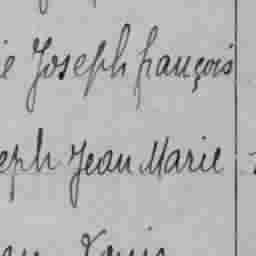 e Joseph françois
eph Jean Marie
Louis